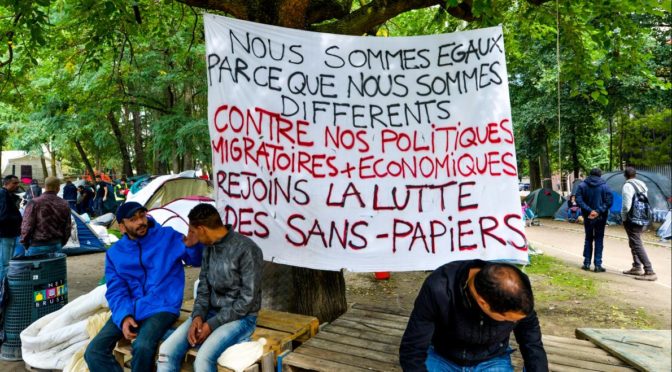 NOUS SOMMES EGAUX
PARCE QUE NOUS SOMMES
DIFFERENTS
CONTRE NOS POLITIQUES
MIGRATOIRES + ECONOMIQUES
REJOINS LA LUTTE
DES SANS-PAPIERS